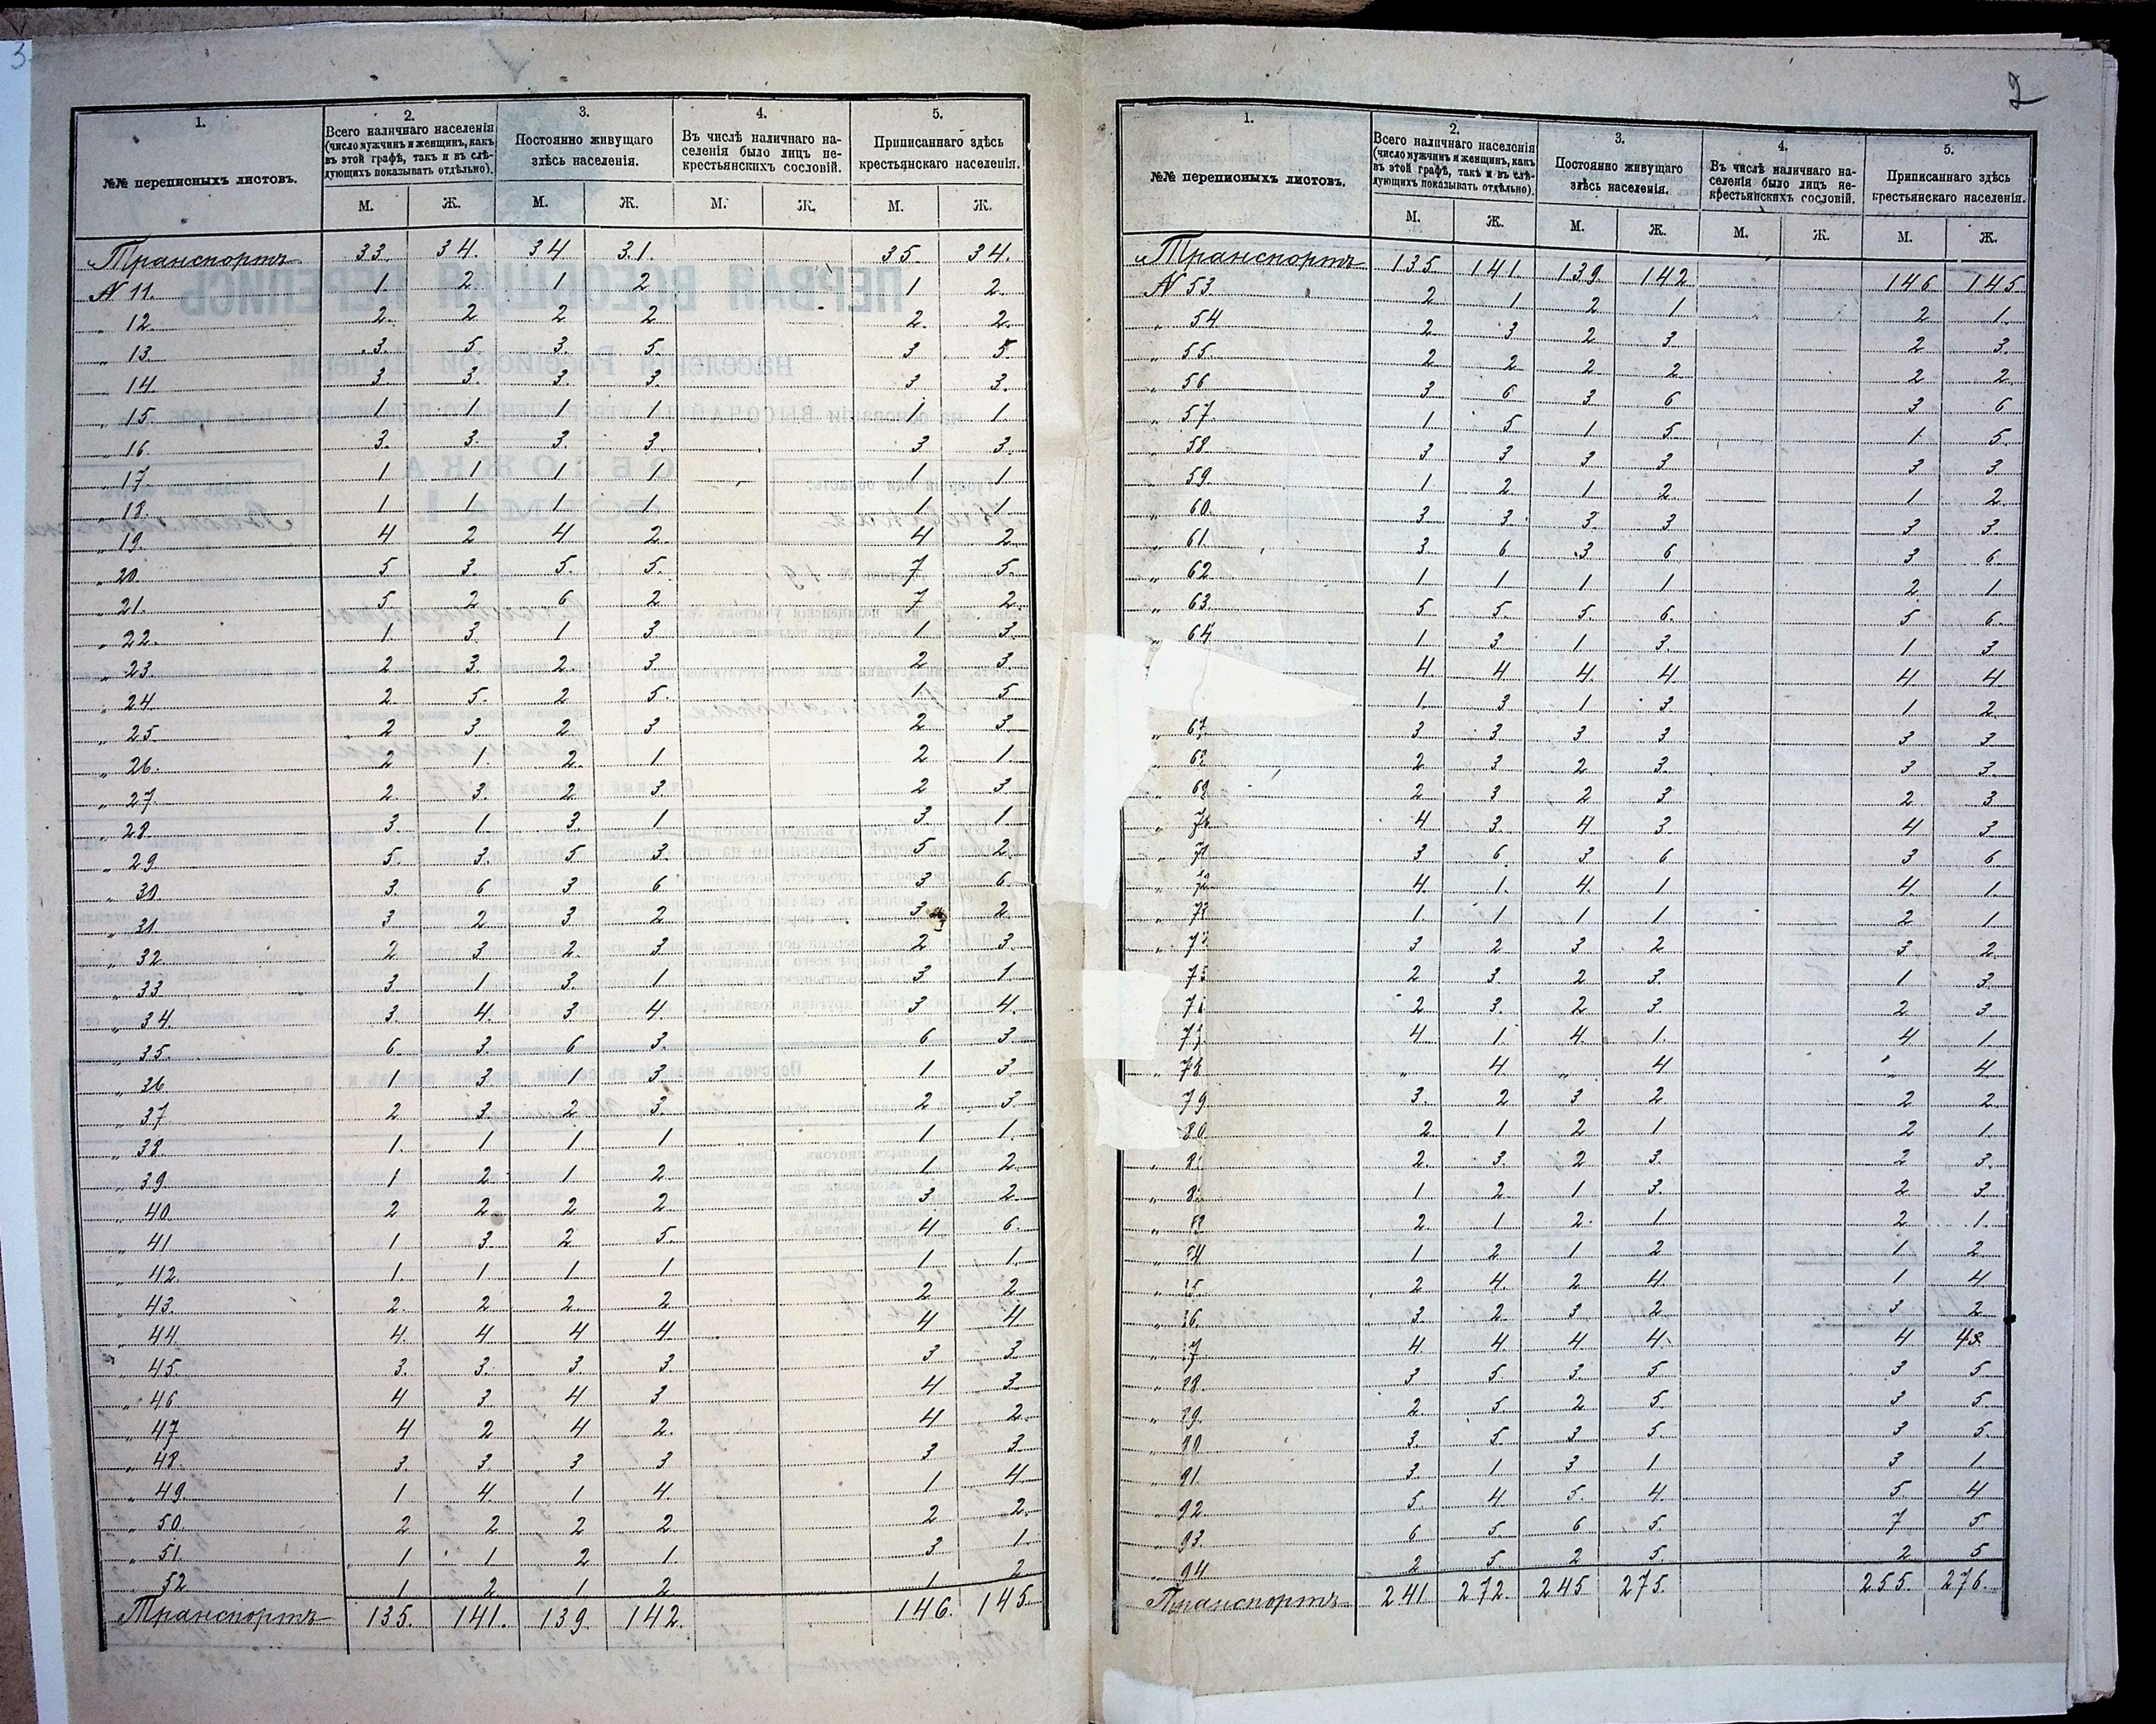 3
1. 2. 3. 4. 5.
№№ переписныхъ листовъ. Всего наличнаго населенія (число мужчинъ и женщинъ, какъ въ этой графѣ, такъ и въ слѣдующихъ показывать отдѣльно). Постоянно живущаго здѣсь населенія. Въ числѣ наличнаго населенія было лицъ некрестьянскихъ сословій. Приписаннаго здѣсь крестьянскаго населенія.
М. Ж. М. Ж. М. Ж. М. Ж.
Транспортъ 33. 34. 34 31. 35. 34.
№ 11. 1 2. 1 2 1 2.
„ 12. 2. 2 2 2 2. 2.
„ 13 3. 5 3. 5. 3 5.
„ 14. 3 3. 3. 3. 3 3.
„ 15. 1 1 1 1 1 1.
„ 16 3. 3. 3. 3. 3 3.
„ 17. 1 1 1 1 1 1
„ 18 1 1 1 1 1 1
„ 19. 4 2 4 2. 4 2
„ 20. 5 3. 5. 5. 7 5.
„ 21. 5 2 6 2 7 2.
„ 22. 1. 3. 1 3 1 3.
„ 23. 2 3. 2. 3 2 3.
„ 24 2. 5. 2 5. 1. 5
„ 25. 2 3. 2 3 2 3.
„ 26. 2 1. 2. 1 2 1.
„ 27. 2. 3. 2 3 2 3
„ 28. 3. 1 3. 1 3 1.
„ 29 5 3. 5 3. 5 2.
„ 30 3. 6 3 6. 3 6.
„ 31. 3 2 3. 2 3 2.
„ 32. 2 3 2. 3 2 3.
„ 33 3. 1 3. 1 3 1
„ 34. 3. 4. 3 4. 3 4.
„ 35. 6. 3. 6 3. 6 3
„ 36 1 3 1 3 1 3.
„ 37. 2 3 2 3. 2 3.
„ 38 1. 1 1 1 1 1.
„ 39. 1 2 1 2. 1 2
„ 40. 2 2 2 2. 3 2
„ 41 1 3. 2 5. 4 6.
„ 42. 1. 1 1 1 1 1.
„ 43. 2. 2 2. 2 2 2
„ 44. 4. 4 4 4 4 4
„ 45. 3. 3. 3. 3 3 3.
„ 46 4 3 4 3 4 3.
„ 47 4 2 4 2. 4 2.
„ 48. 3. 3 3 3 3 3.
„ 49. 1 4. 1 4. 1 4.
„ 50. 2 2 2 2. 2 2.
„ 51. 1 1 2 1. 3 1.
„ 52 1 2 1 2 1 2
Транспортъ 135. 141. 139. 142. 146. 145
2
1. 2. 3. 4. 5.
№№ переписныхъ листовъ. Всего наличнаго населенія (число мужчинъ и женщинъ, какъ въ этой графѣ, такъ и въ слѣдующихъ показывать отдѣльно). Постоянно живущаго здѣсь населенія. Въ числѣ наличнаго населенія было лицъ некрестьянскихъ сословій. Приписаннаго здѣсь крестьянскаго населенія.
М. Ж. М. Ж. М. Ж. М. Ж.
Транспортъ 135. 141. 139. 142 146 145
№ 53. 2 1 2 1 2 1.
„ 54 2 3 2 3 2 3.
„ 55. 2 2 2 2 2 2
„ 56 3 6 3 6 3 6
„ 57. 1 5 1 5. 1. 5.
„ 58. 3 3 3 3 3 3
„ 59. 1 2 1 2. 1 2
„ 60. 3 3. 3. 3 3 3.
„ 61. 3. 6 3 6 3 6.
„ 62 1 1 1 1 2 1
„ 63. 5 5. 5. 6. 5 6.
„ 64 1 3. 1 3. 1 3
4. 4 4. 4 4. 4
1. 3 1 3 1 2
„ 67. 3 3. 3 3 3 3
„ 68 2 3 2 3. 3 3.
„ 69 2 3 2 3 2. 3
„ 4 3. 4 3. 4 3
„ 71 3 6. 3 6 3 6.
„ 72 4. 1. 4. 1 4. 1.
„ 73 1 1 1 1 2 1
„ 7 3 2 3 2 3 2
7 2 3. 2 3. 1 3.
7 2 3. 2 3. 2 3
7 4 1. 4. 1. 4 1
„ 78 „ 4 „ 4 „ 4
79 3. 2 3 2. 2 2
80 2. 1 2 1 2 1.
„ 8 2. 3. 2 3. 2 3.
„ 8 1 2 1 3. 2 3
„ 2. 1 2. 1 2 1.
„ 84 1 2 1 2 1 2
„ 5. 2 4. 2 4. 1 4
„ 6. 3. 2 3 2 3 2
„ 7 4 4 4 4. 4
„ 88. 3 5. 3. 5 3 5.
„ 89. 2. 5. 2 5. 3 5
„ 90 3. 5. 3 5 3 5.
„ 91. 3. 1 3 1 3 1
92. 5. 4 5. 4. 5. 4
„ 93. 6 5. 6 5. 7 5
„ 94 2 5. 2 5. 2 5
Транспортъ 241 272. 245 275. 255. 276.